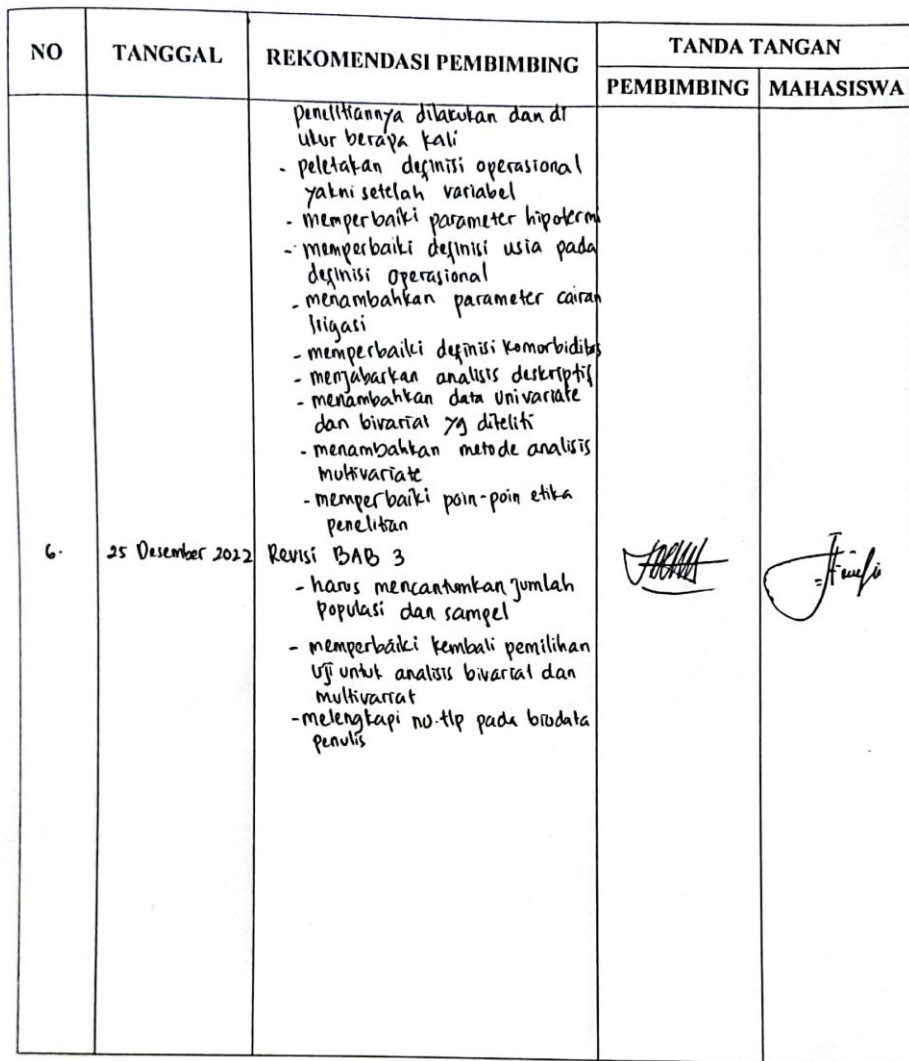 NO
TANGGAL
REKOMENDASI PEMBIMBING
TANDA TANGAN
PEMBIMBING
MAHASISWA
penelitiannya dilakukan dan di
ukur berapa kali
- peletakan definisi operasional
yakni setelah variabel
- memperbaiki parameter hipotermi
- memperbaiki definisi usia pada
definisi operasional
- menambahkan parameter cairan
Irigasi
- memperbaiki definisi komorbiditas
- menjabarkan analisis deskriptif
- menambahkan data univariate
dan bivariat yg diteliti
- menambahkan metode analisis
multivariate
- memperbaiki poin-poin etika
penelitian
6. 25 Desember 2022 Revisi BAB 3
- harus mencantumkan jumlah
populasi dan sampel
- memperbaiki kembali pemilihan
uji untuk analisis bivariat dan
multivariat
- melengkapi no.tlp pada biodata
penulis